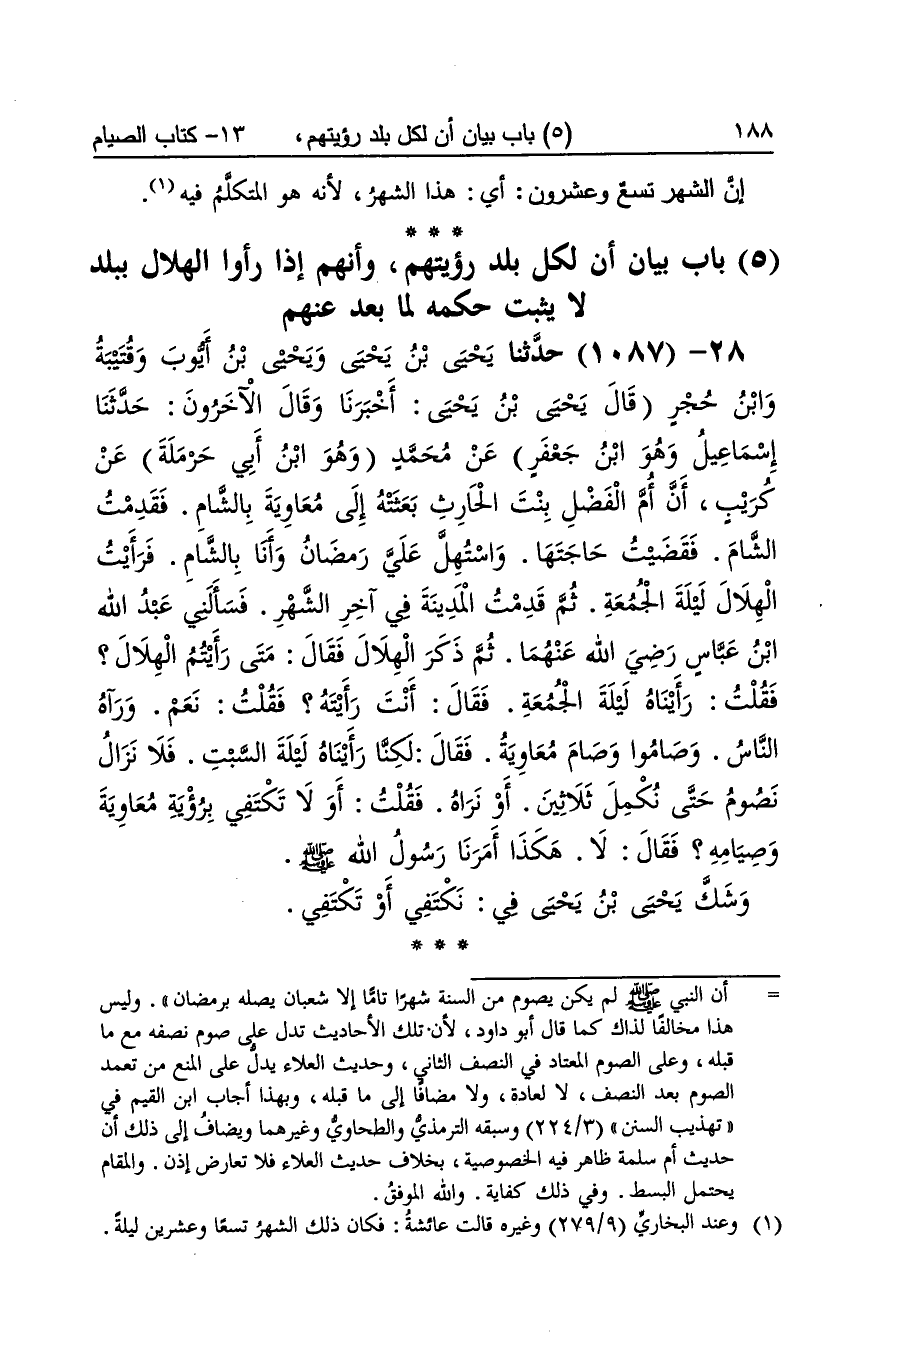 ١٨٨ (٥) باب بيان أن لكل بلد رؤيتهم، ١٣- كتاب الصيام
إنَّ الشهر تسعٌ وعشرون: أي: هذا الشهرُ، لأنه هو المتكلَّمُ فيه(١).
* * *
(٥) باب بيان أن لكل بلد رؤيتهم، وأنهم إذا رأوا الهلال ببلد
لا يثبت حكمه لما بعد عنهم
٢٨- (١٠٨٧) حدَّثنا يَحْيَى بْنُ يَحْيَى وَيَحْيَى بْنُ أَيُّوبَ وَقُتَيْبَةُ
وَابْنُ حُجْرٍ (قَالَ يَحْيَى بْنُ يَحْيَى: أَخْبَرَنَا وَقَالَ الْآخَرُونَ: حَدَّثَنَا
إِسْمَاعِيلُ وَهُوَ ابْنُ جَعْفَرٍ) عَنْ مُحَمَّدٍ (وَهُوَ ابْنُ أَبِي حَرْمَلَةَ) عَنْ
كُرَيْبٍ، أَنَّ أُمَّ الْفَضْلِ بِنْتَ الْحَارِثِ بَعَثَتْهُ إِلَى مُعَاوِيَةَ بِالشَّامِ. فَقَدِمْتُ
الشَّامَ. فَقَضَيْتُ حَاجَتَهَا. وَاسْتُهِلَّ عَلَيَّ رَمَضَانُ وَأَنَا بِالشَّامِ. فَرَأَيْتُ
الْهِلَالَ لَيْلَةَ الْجُمُعَةِ. ثُمَّ قَدِمْتُ الْمَدِينَةَ فِي آخِرِ الشَّهْرِ. فَسَأَلَنِي عَبْدُ الله
ابْنُ عَبَّاسٍ رَضِيَ الله عَنْهُمَا. ثُمَّ ذَكَرَ الْهِلَالَ فَقَالَ: مَتَى رَأَيْتُمُ الْهِلَالَ؟
فَقُلْتُ: رَأَيْنَاهُ لَيْلَةَ الْجُمُعَةِ. فَقَالَ: أَنْتَ رَأَيْتَهُ؟ فَقُلْتُ: نَعَمْ. وَرَآهُ
النَّاسُ. وَصَامُوا وَصَامَ مُعَاوِيَةُ. فَقَالَ :لَكِنَّا رَأَيْنَاهُ لَيْلَةَ السَّبْتِ. فَلَا نَزَالُ
نَصُومُ حَتَّى نُكْمِلَ ثَلَاثِينَ. أَوْ نَرَاهُ. فَقُلْتُ: أَوَ لَا تَكْتَفِي بِرُؤْيَةِ مُعَاوِيَةَ
وَصِيَامِهِ؟ فَقَالَ: لَا. هَكَذَا أَمَرَنَا رَسُولُ الله ﷺ.
وَشَكَّ يَحْيَى بْنُ يَحْيَى فِي: نَكْتَفِي أَوْ تَكْتَفِي.
* * *
= أن النبي ﷺ لم يكن يصوم من السنة شهرًا تامًّا إلا شعبان يصله برمضان». وليس
هذا مخالفًا لذاك كما قال أبو داود، لأن تلك الأحاديث تدل على صوم نصفه مع ما
قبله، وعلى الصوم المعتاد في النصف الثاني، وحديث العلاء يدلُّ على المنع من تعمد
الصوم بعد النصف، لا لعادة، ولا مضافًا إلى ما قبله، وبهذا أجاب ابن القيم في
«تهذيب السنن» (٢٢٤/٣) وسبقه الترمذيُّ والطحاويُّ وغيرهما ويضافُ إلى ذلك أن
حديث أم سلمة ظاهر فيه الخصوصية، بخلاف حديث العلاء فلا تعارض إذن. والمقام
يحتمل البسط. وفي ذلك كفاية. والله الموفقُ.
(١) وعند البخاريِّ (٢٧٩/٩) وغيره قالت عائشةُ: فكان ذلك الشهرُ تسعًا وعشرين ليلةً.